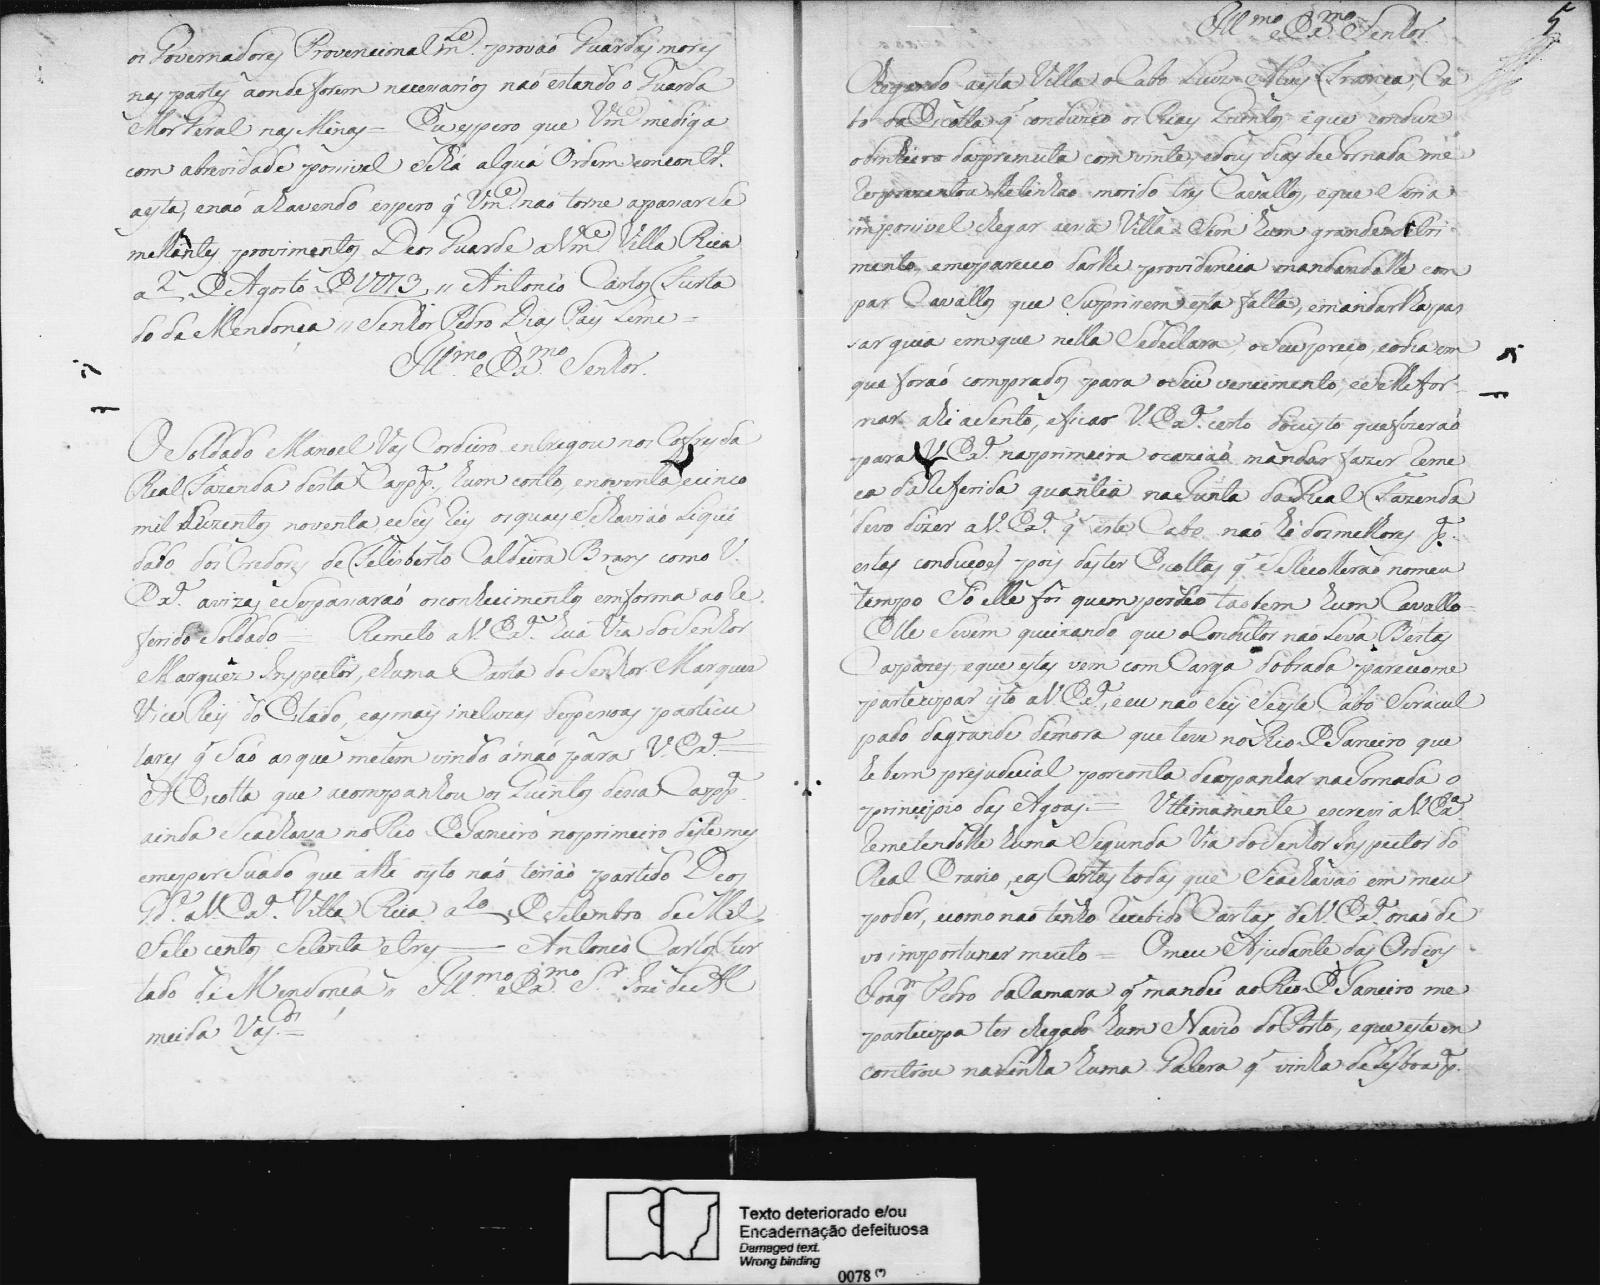 os Governadores Provencionalmte. provaõ Guardas mores
nas partes aonde forem necesarios naõ estando o Guarda
Mor Geral nas Minas = Eu espero que Vmce. me diga
com abrevidade posivel se há algũa Ordem em contro.
a esta, e naõ ahavendo espero q̃ Vmce. naõ torne apasar se
melhantes provimentos Deos Guarde a Vmce. Villa Rica
a 2 de Agosto de 1773 // Antonio Carlos Furta
do de Mendonca // Senhor Pedro Dias Pais Leme =
Illmo. e Exmo. Senhor.
O Soldado Manoel Vas Cordeiro entregou nos Cofres da
Real Fazenda desta Cappnia., hum conto, e noventa e cinco
mil duzentos noventa e seis reis os quaes se haviaõ liqui
dado dos Credores de Felisberto Caldeira Brans como V.
Exa. aviza, e se pasaraõ os conhecimentos em forma ao re
ferido Soldado = Remeto a V. Exa. huã Via do Senhor
Marquez Inspector, e huma Carta do Senhor Marquez
Vice Rey do Estado, e as mais incluzas despersas particu
lares q̃ saõ as que me tem vindo á maõ para V. Exa. =
A Escolta que acompanhou os Quintos desa Cappnia.
ainda se achava no Rio de Janeiro no primeiro deste mes
e me persuado que athe oyto naõ teriaõ partido Deos
Gde. a V. Exa. Villa Rica a 20 de Setembro de Mil
Sete centos Setenta e tres — Antonio Carlos Fur
tado de Mendonca // Illmo. e Exmo. Sr. Joze de Al
meida Vascos. =
5
Illmo. e Exmo. Senhor
Chegando a esta Villa o Cabo Luiz Alves Franca, Ca
bo da Escolta q̃ conduzio os Reas Quintos e que conduz
o dinheiro da premuta com vinte, e dous dias de Jornada me
reprezentou lhe tinhaõ morrido tres Cavallos, e que seria
imposivel chegar a esa Villa sem hum grande detri
mento, e me pareceo darlhe providencia mandandolhe com
prar Cavallos que suprisem esta falta, e mandarlhes pas
sar guia em que nella se declara, o seu preco, e o dia em
que foraõ comprados para o seu vencimento, e se lhe for
mar ahi asento, e ficar V. Exa. certo do custo que fizeraõ
para V. Exa. na primeira ocaziaõ mandar fazer reme
ca da referida quantia na Junta da Real Fazenda
devo dizer a V. Exa. q̃ este Cabo naõ hé dos melhores pa.
estas conducoes pois das tres Escoltas q̃ se recolheraõ no meu
tempo só elle foi quem perdeo taõbem hum Cavallo =
Elle se vem queixando que o Condutor naõ leva Bestas
Capazes, e que estas vem com Carga dobrada pareceome
participar isto a V. Exa., e eu naõ sei se este Cabo será cul
pado da grande demora que teve no Rio de Janeiro que
he bem prejudicial por conta de apanhar na Jornada o
principio das Agoas. = Ultimamente escrevi a V. Exa.
remetendolhe huma Segunda Via do Senhor Inspector do
Real Erario, e as Cartas todas que se achavaõ em meu
poder, e como naõ tenho recebido Cartas de V. Exa. o naõ de
vo importunar mento = O meu Ajudante das Ordens
Joaqm. Pedro da Camara q̃ mandei ao Rio de Janeiro me
participa ter chegado hum Navio do Porto, e que este en
controu na Linha huma Galera q̃ vinha de Lisboa pa.
Texto deteriorado e/ou
Encadernação defeituosa
Damaged text.
Wrong binding
0078 (*)